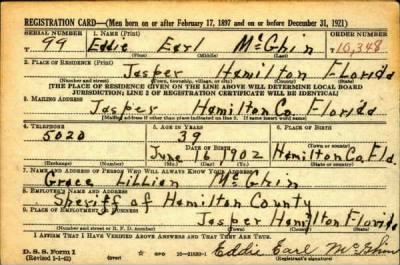 REGISTRATION CARD—(Men born on or after February 17, 1897 and on or before December 31, 1921)
SERIAL NUMBER 1. NAME (Print) ORDER NUMBER
99 Eddie Earl McGhin 10,348
(First) (Middle) (Last)
2. PLACE OF RESIDENCE (Print)
Jasper Hamilton Florida
(Number and street) (Town, township, village, or city) (County) (State)
[THE PLACE OF RESIDENCE GIVEN ON THE LINE ABOVE WILL DETERMINE LOCAL BOARD
JURISDICTION; LINE 2 OF REGISTRATION CERTIFICATE WILL BE IDENTICAL]
3. MAILING ADDRESS
Jasper Hamilton Co. Florida
(Mailing address if other than place indicated on line 2. If same insert word same)
4. TELEPHONE 5. AGE IN YEARS 6. PLACE OF BIRTH
5020 39
DATE OF BIRTH (Town or county)
June 16 1902 Hamilton Co, Fla.
(Exchange) (Number) (Mo.) (Day) (Yr.) (State or country)
7. NAME AND ADDRESS OF PERSON WHO WILL ALWAYS KNOW YOUR ADDRESS
Grace Lillian McGhin
8. EMPLOYER'S NAME AND ADDRESS
Sheriff of Hamilton County
9. PLACE OF EMPLOYMENT OR BUSINESS
Jasper Hamilton Florida
(Number and street or R. F. D. number) (Town) (County) (State)
I AFFIRM THAT I HAVE VERIFIED ABOVE ANSWERS AND THAT THEY ARE TRUE.
D. S. S. Form 1
(Revised 1-1-42) (over) GPO 16—21630-1
Eddie Earl McGhin
(Registrant's signature)